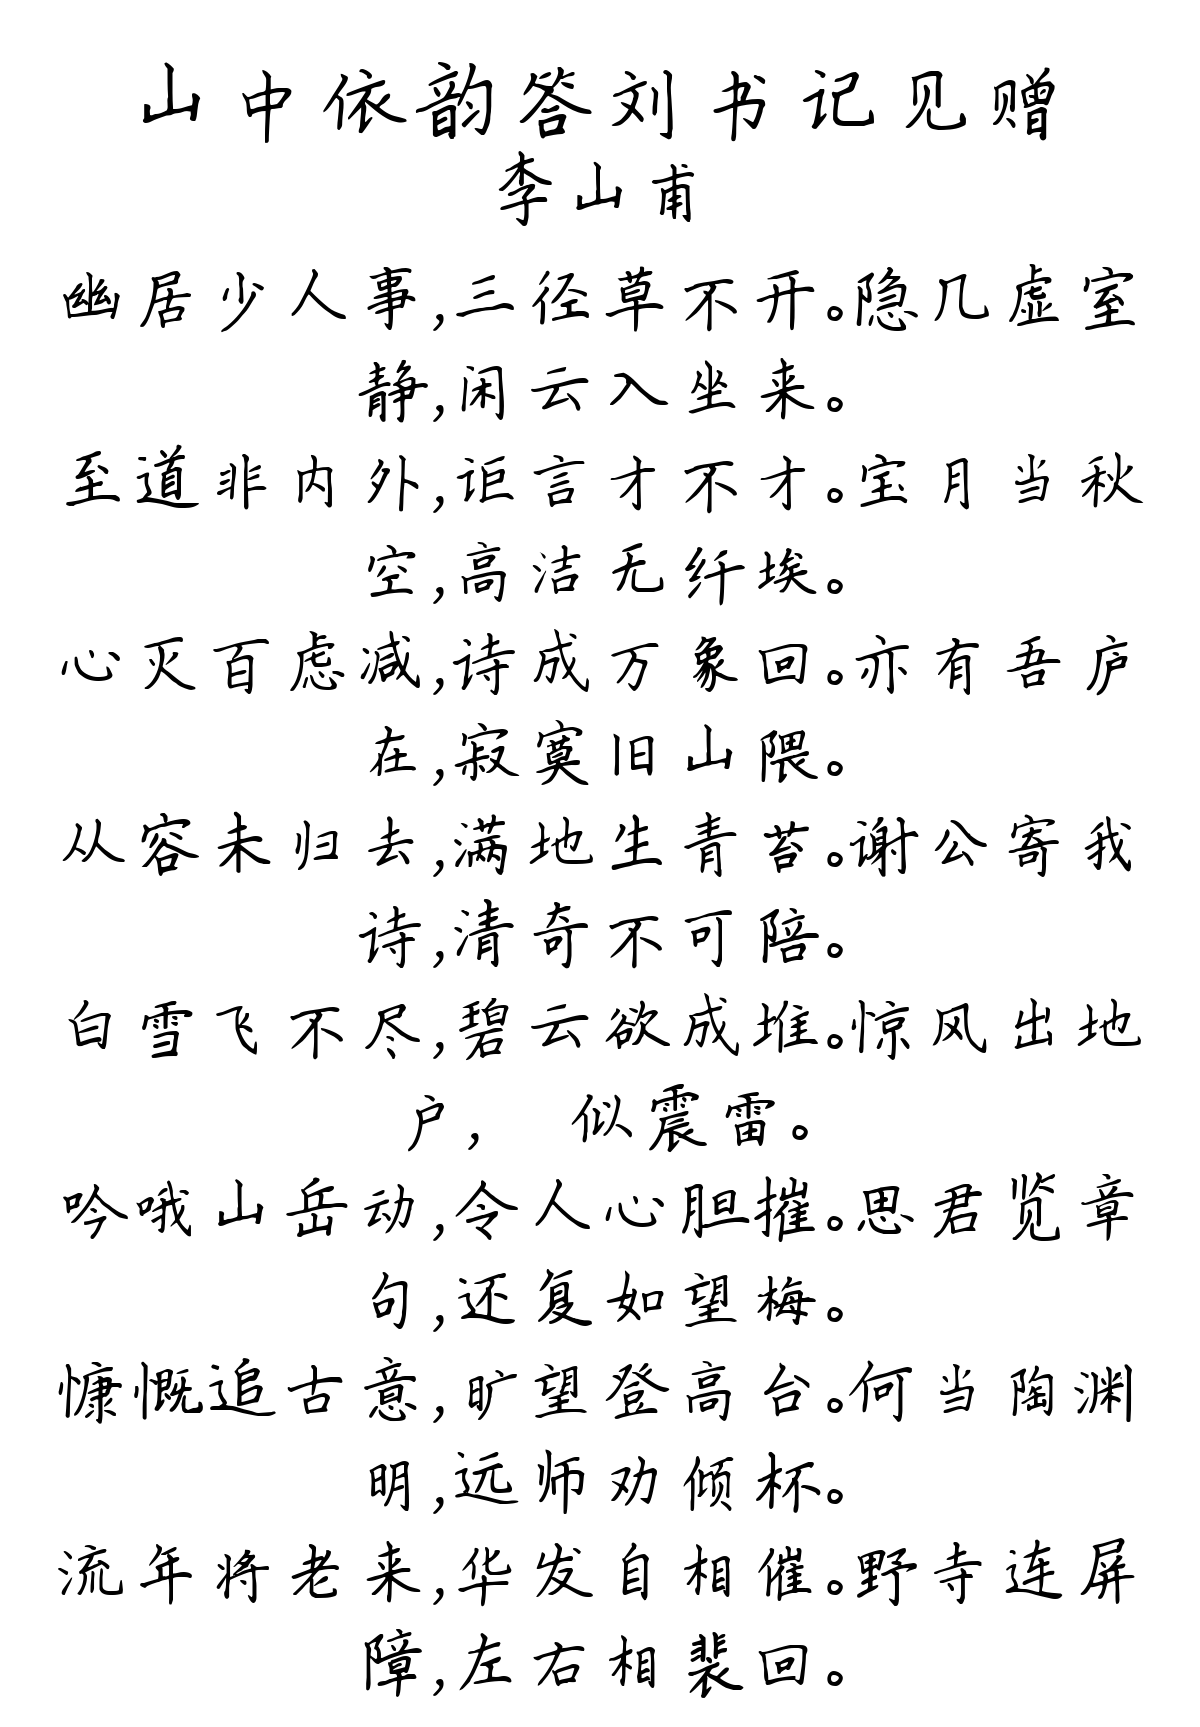 山中依韵答刘书记见赠
李山甫
幽居少人事,三径草不开。隐几虚室
静,闲云入坐来。
至道非内外,讵言才不才。宝月当秋
空,高洁无纤埃。
心灭百虑减,诗成万象回。亦有吾庐
在,寂寞旧山隈。
从容未归去,满地生青苔。谢公寄我
诗,清奇不可陪。
白雪飞不尽,碧云欲成堆。惊风出地
户, 似震雷。
吟哦山岳动,令人心胆摧。思君览章
句,还复如望梅。
慷慨追古意,旷望登高台。何当陶渊
明,远师劝倾杯。
流年将老来,华发自相催。野寺连屏
障,左右相裴回。